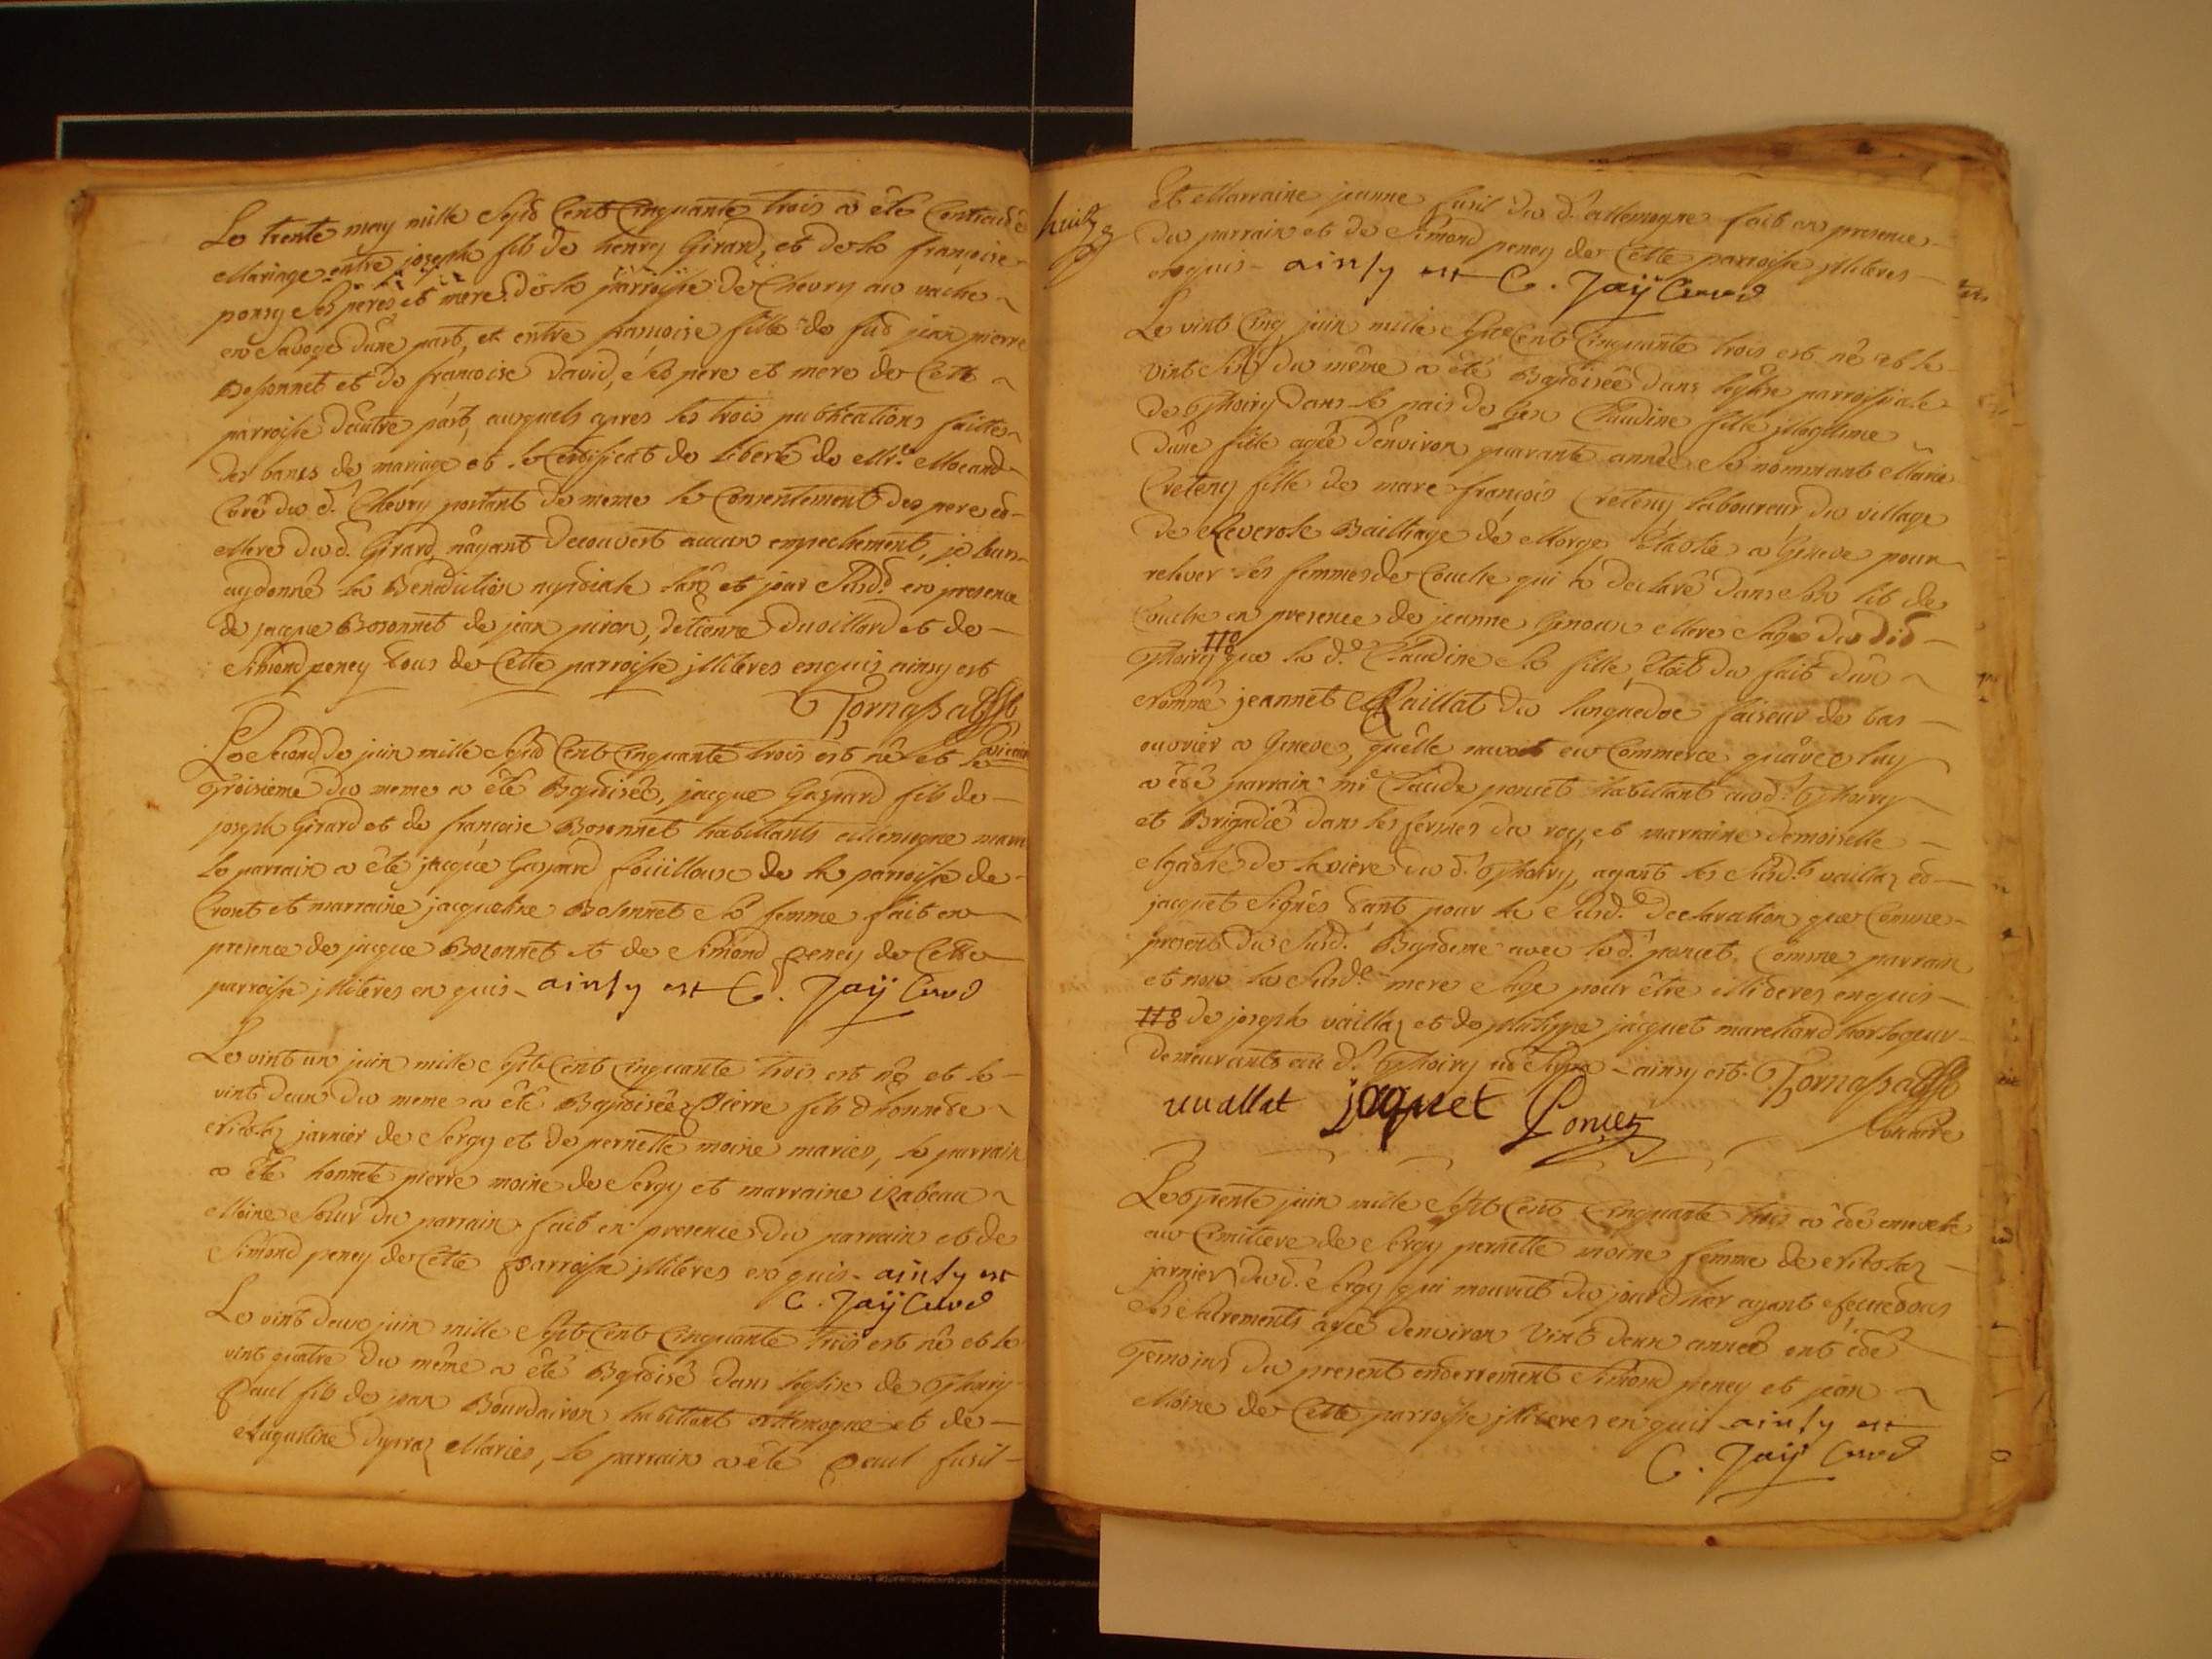 Le trente may mille sept Cent Cinquante trois a été Contracté
Mariage entre joseph fils de henry Girard, et de la françoise
ponsy ses peres et mere de la parroisse de Chevry au vache
en Savoye d'une part, et entre francoise fille de fud jean pierre
Bosonnet et de francoise david, ses pere et mere de Cette
parroisse d'autre part, auxquels apres les trois publications faites
des bancs de mariage et le Certificat de liberté de Mr. Mocand
Curé du d. Chevry portant de meme le Consentement des pere et
Mere dud. Girard, n'ayant decouvert aucun empechement, je leur
ay donné la Benediction nuptiale l'an et jour susd. en presence
de jacque Bosonnet de jean piron, d'etienne duvillard et de
Simond peney tous de Cette parroisse illiteres enquis ainsy est
Tornassat
vicaire
Le Second de juin mille sept Cent Cinquante trois est né et le
Troisieme du meme a été Baptisét, jacque Gaspard fils de
joseph Girard et de francoise Bosonnet habittants allemogne
le parrain a été jacque Gaspard fouilloux de la parroisse de
Crozet et marraine jacqueline Bosonnet sa femme fait en
presence de jacque Bozonnet et de Simond peney de Cette
parroisse illiteres en quis - ainsy est C. Jaÿ Curé
Le vint un juin mille sept Cent Cinquante trois est né et le
vint deux du meme a été Baptisée Pierre fils d'honnete
Nicolas jarnier de Sergy et de pernette moine maries, le parrain
a été honnete pierre moine de Sergy et marraine izabeau
Moine soeur du parrain fait en presence du parrain et de
Simond peney de Cette parroisse illiteres en quis - ainsy est
C. Jaÿ Curé
Le vint deux juin mille sept Cent Cinquante trois est né et le
vint quatre du même a été Baptisé dans l'eglise de Thoiry
Paul fils de jean Bourdairon habittant allemogne et de
Augustine dupraz Maries, le parrain a été Paul fusil
huit
et Marraine jeanne fusil du d. allemogne fait en presence
du parrain et de Simond peney de Cette parroisse illiteres
enquis - ainsy est C. Jaÿ Curé
Le vint Cinq juin mille sept Cent Cinquante trois est né et le
vint six du même a été Baptisée dans l'eglise parroissiale
de Thoiry dans le pais de Gex Claudine fille illegitime
d'une fille agée d'environ quarante année se nommant Marie
Creteny fille de marc françois Creteny laboureur du village
de Reverole Bailliage de Morge Etablie a Geneve pour
relever les femmes de Couche qui a declaré dans son lit de
Couche en presence de jeanne Genoux Mere sage du dit
Thoiry que la d.e Claudine sa fille, etoit du fait d'un
Nommé jeannet Paillat du languedoc faiseur de bas
ouvrier a Geneve, qu'elle navoit eu Commerce qu'avec luy
a été parrain mr. Claude poncet habittant aud. Thoiry
et Brigadié dans les fermes du roy, et marraine demoiselle
de laviere du d. Thoiry, ayant les susd.ts vaillaz et
jacquet signés tant pour la susd.e declaration que Comme
present du susd. Baptême avec le d. poncet Comme parrain
et non la susd.e mere sage pour être illiteres enquis
de joseph vaillaz et de philippe jacquet marchand horlogeur
demeurants au d. Thoiry - ainsy est. Tornassat
uuallat jaquet Poncet vicaire
Le Trente juin mille sept Cent Cinquante trois a été enseveli
au Cimitiere de Sergy pernette moine femme de Nicolas
jarnier dud. Sergy qui mourut du jour d'hier ayant reçue tous
les sacrements agée d'environ vint deux année ont été
Temoins du present enterrement Simond peney et jean
Moine de Cette parroisse illiteres en quis - ainsy est
C. Jaÿ Curé